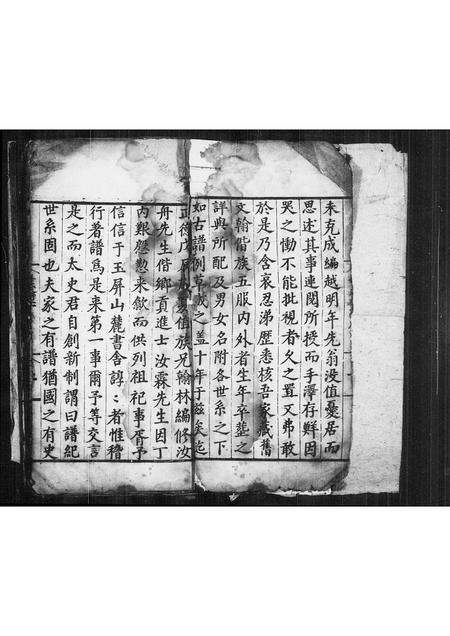 未克成編越明年先翁没值憂居而
思述其事連閱所授而手澤存鮮因
哭之慟不能批視者久之置又弗敢
於是乃含哀忍涕歷悉核吾家藏舊
文翰偕族五服内外者生年卒塟之
詳與所配及男女名附各世系之下
如古譜例草成之盖十年于兹矣迄
正德戊辰值族兄翰林編修汝
舟先生偕鄉貢進士汝霖先生因丁
内艱懸懃来歙而供列祖祀事胥予
信信于玉屏山麓書舍諄諄者惟稽
行著譜爲是来第一事爾予等交言
是之而太史君自創新制謂曰譜紀
世系固也夫家之有譜猶國之有史